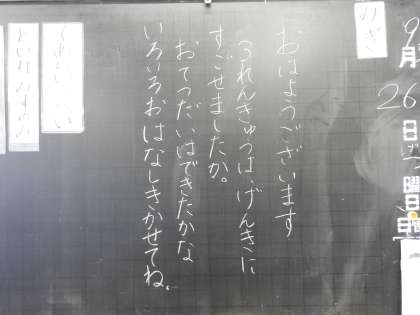 みぎ
9月
26日
げつ曜日
おはようございます
3れんきゅうは、げんきに
すごせましたか。
おてつだいはできたかな
いろいろおはなしきかせてね。